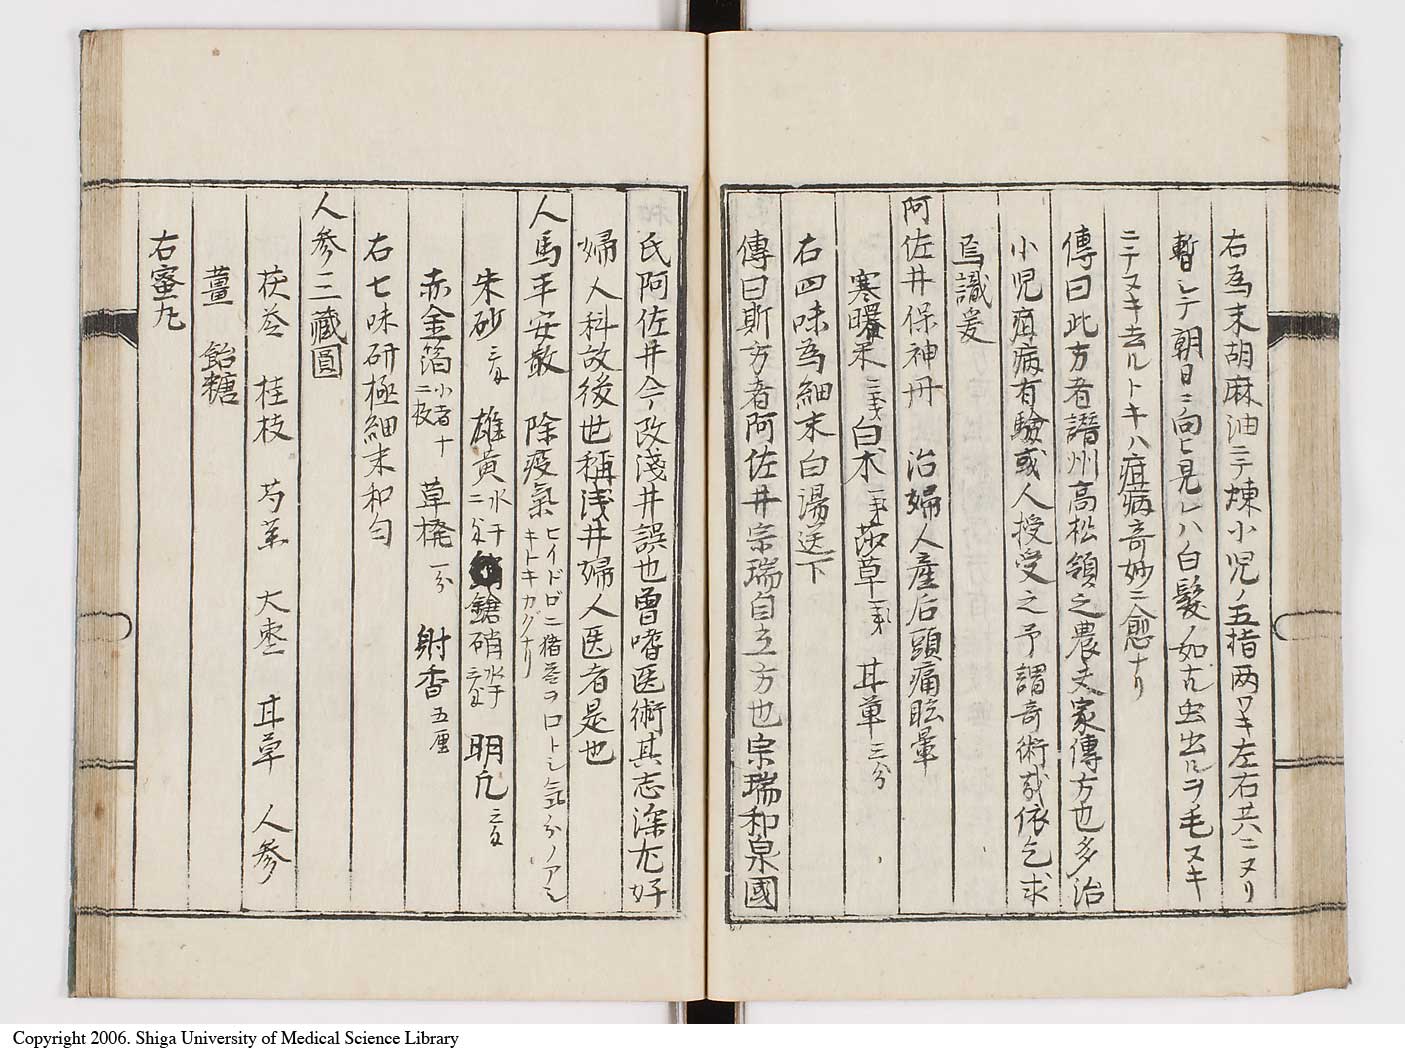 右為末胡麻油ニテ煉小児ノ五指两ワキ左右共ニヌリ
暫シテ朝日ニ向ヒ見レハ白髮ノ如キ虫出ルヲ毛ヌキ
ニテヌキ去ルトキハ疳病奇妙ニ愈ナリ
傳曰此方者讃州高松領之農夫家傳方也多治
小児疳病有驗或人授受之予謂奇術哉依乞求
焉識爰
阿佐井保神丹 治婦人産后頭痛眩暈
寒曝末 二戋 白朮 一戋 莎草 一戋 甘草 三分
右四味為細末白湯送下
傳曰斯方者阿佐井宗瑞自立方也宗瑞和泉國
氏阿佐井今改淺井誤也曽嗜医術其志深尤好
婦人科故後世稱浅井婦人医者是也
人馬平安散 除疫氣 ヒイドロニ播巻ヲロトシ氣分ノアシ
キトキカグナリ
朱砂 雄黄 水干 二分 鎗硝 水干 明凡
赤金箔 小者十 二枚 草撓 一分 射香 五厘
右七味研極細末和匀
人参三藏圓
茯苓 桂枝 芍薬 大枣 甘草 人参
薑 飴糖
右蜜丸
Copyright 2006. Shiga University of Medical Science Library